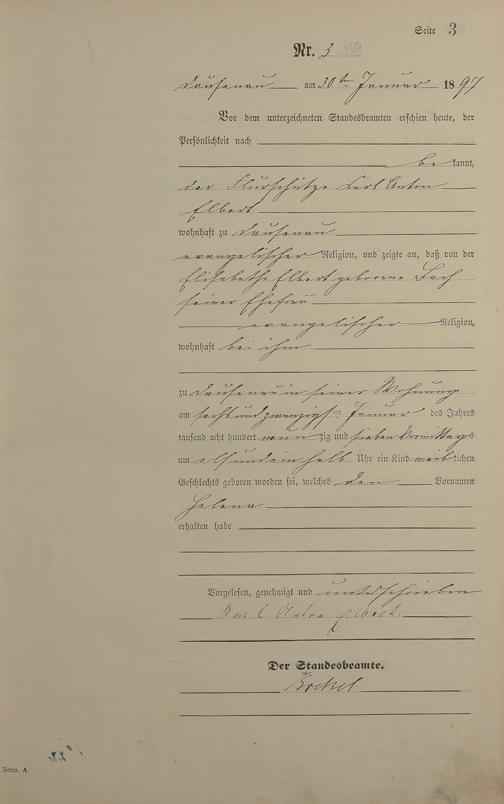 Seite 3
Nr. 3
Dausenau am 30ten Januar 1897
Vor dem unterzeichneten Standesbeamten erschien heute, der
Persönlichkeit nach
be kannt,
der Flurschütze Carl Anton
Elbert
wohnhaft zu Dausenau
evangelischer Religion, und zeigte an, daß von der
Elisabethe Elbert geborene Bach
seiner Ehefrau
evangelischer Religion,
wohnhaft bei ihm
zu Dausenau in seiner Wohnung
am sechsundzwanzigsten Januar des Jahres
tausend acht hundert neun zig und sieben Vormittags
um elfundeinhalb Uhr ein Kind weiblichen
Geschlechts geboren worden sei, welches den Vornamen
Helena
erhalten habe
Vorgelesen, genehmigt und unterschrieben
Karl Anton Elbert.
Der Standesbeamte.
Form. A.